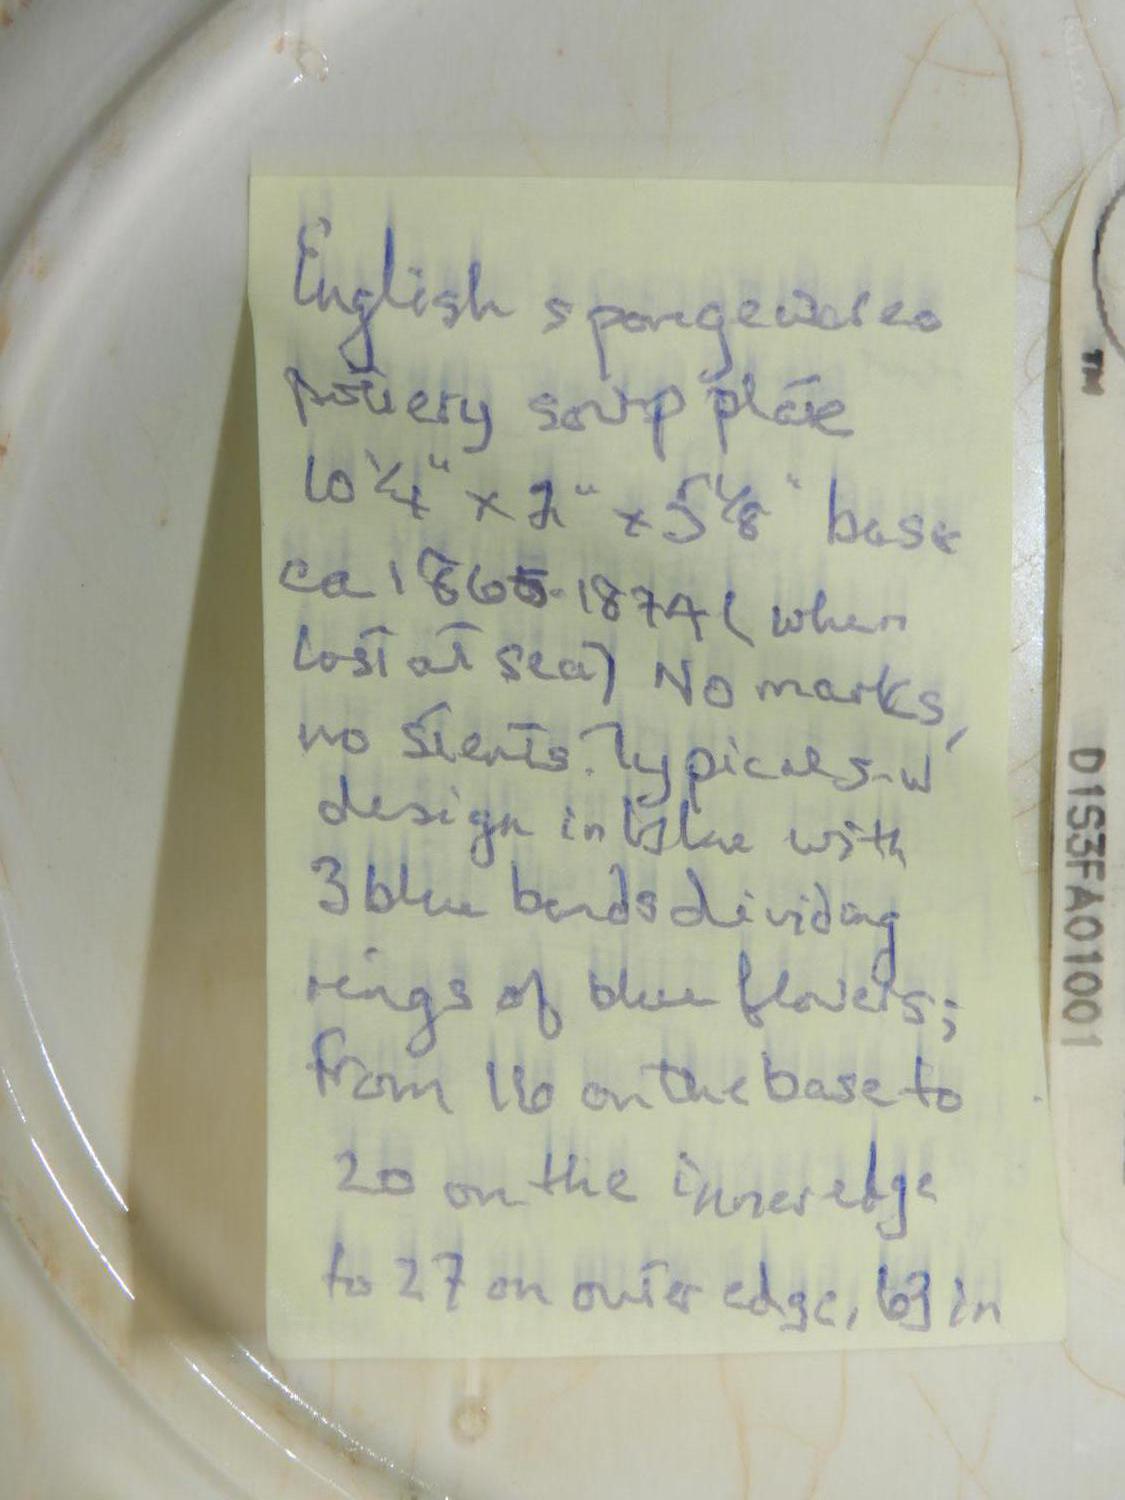 English spongeware
pottery soup plate
10 1/4" x 2" x 5 1/8" base
ca 1865-1874 (when
lost at sea) No marks,
no stents. Typical s-w
design in blue with
3 blue bands dividing
rings of blue flowers;
from 16 on the base to
20 on the inner edge
to 27 on outer edge, 63 in
TM
D1S3FA01001